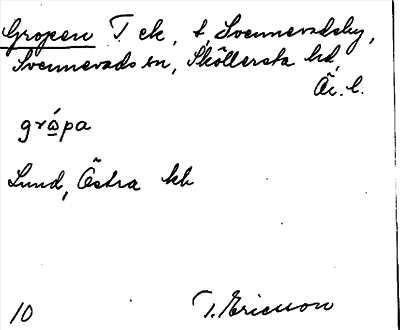 Gropen T ek, t, Svennevadsby,
Svennevads sn, Sköllersta hd,
Ör. l.
grώ̲pa
Lund, Östra kb
10 T. Ericsson